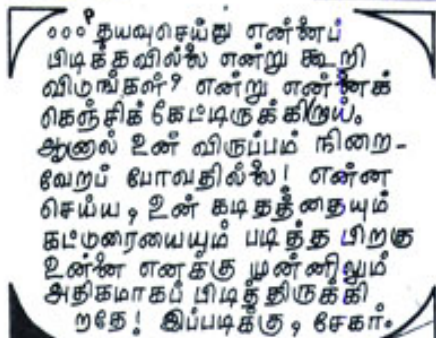 ...'தயவுசெய்து என்னைப்
பிடிக்கவில்லை என்று கூறி
விடுங்கள்? என்று என்னைக்
கெஞ்சிக் கேட்டிருக்கிறாய்.
ஆனால் உன் விருப்பம் நிறை-
வேறப் போவதில்லை! என்ன
செய்ய, உன் கடிதத்தையும்
கட்டுரையையும் படித்த பிறகு
உன்னை எனக்கு முன்னிலும்
அதிகமாகப் பிடித்திருக்கி
றதே! இப்படிக்கு, சேகர்.